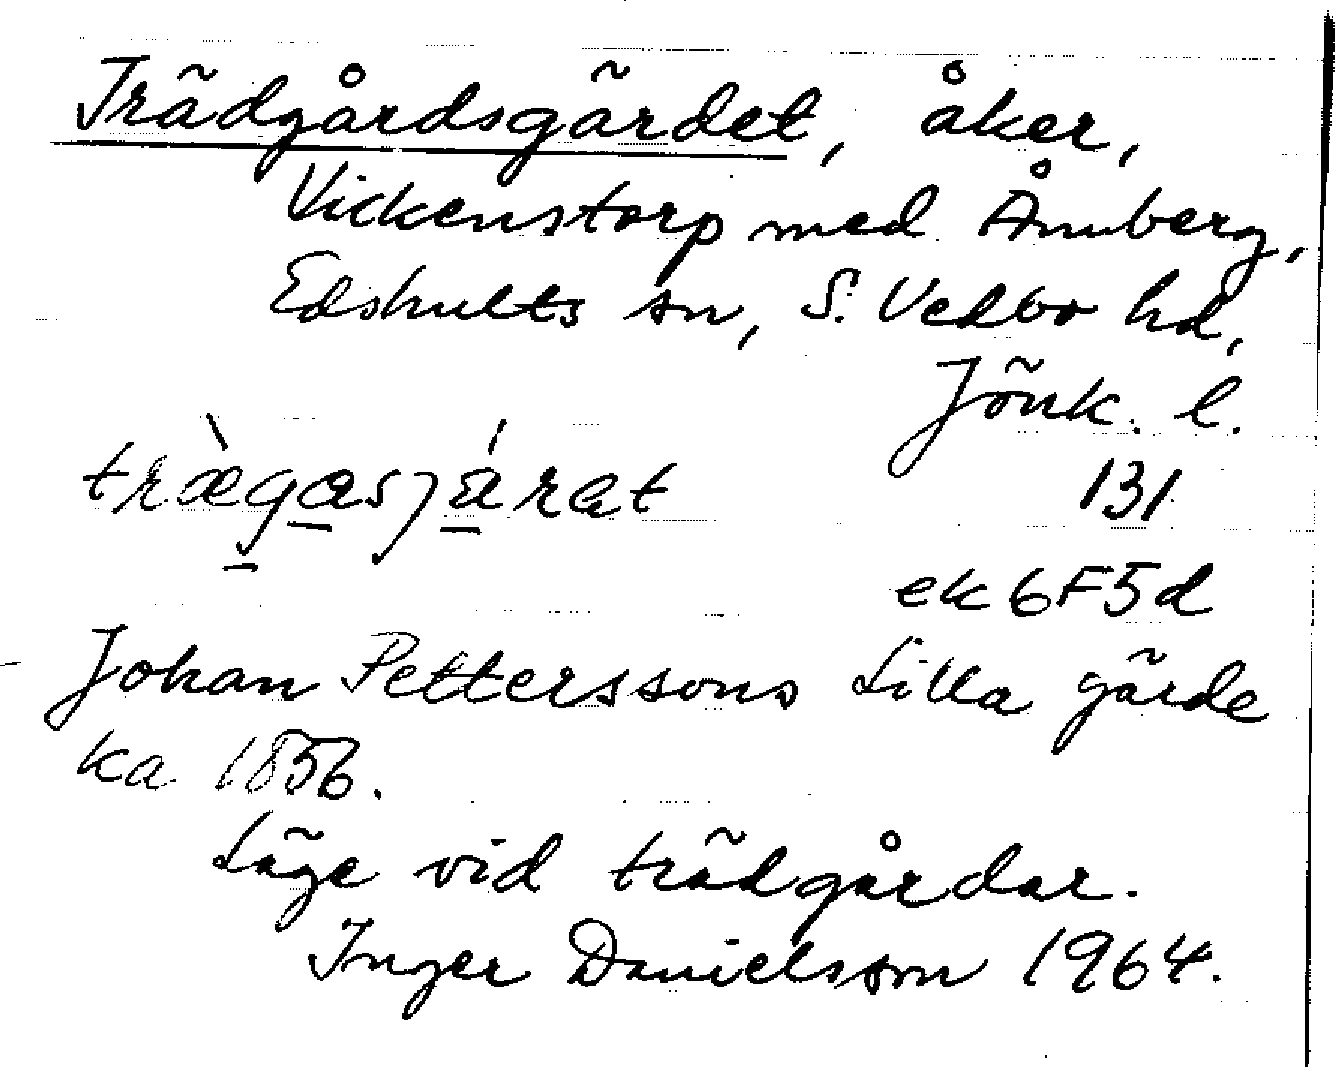 Trädgårdsgärdet, åker,
Vickenstorp med Åmberg,
Edshults sn, S. Vedbo hd,
Jönk. l.
131
ek 6F5d
Johan Petterssons Lilla gärde
ka 1856.
Läge vid trädgårdar.
Inger Danielsson 1964.